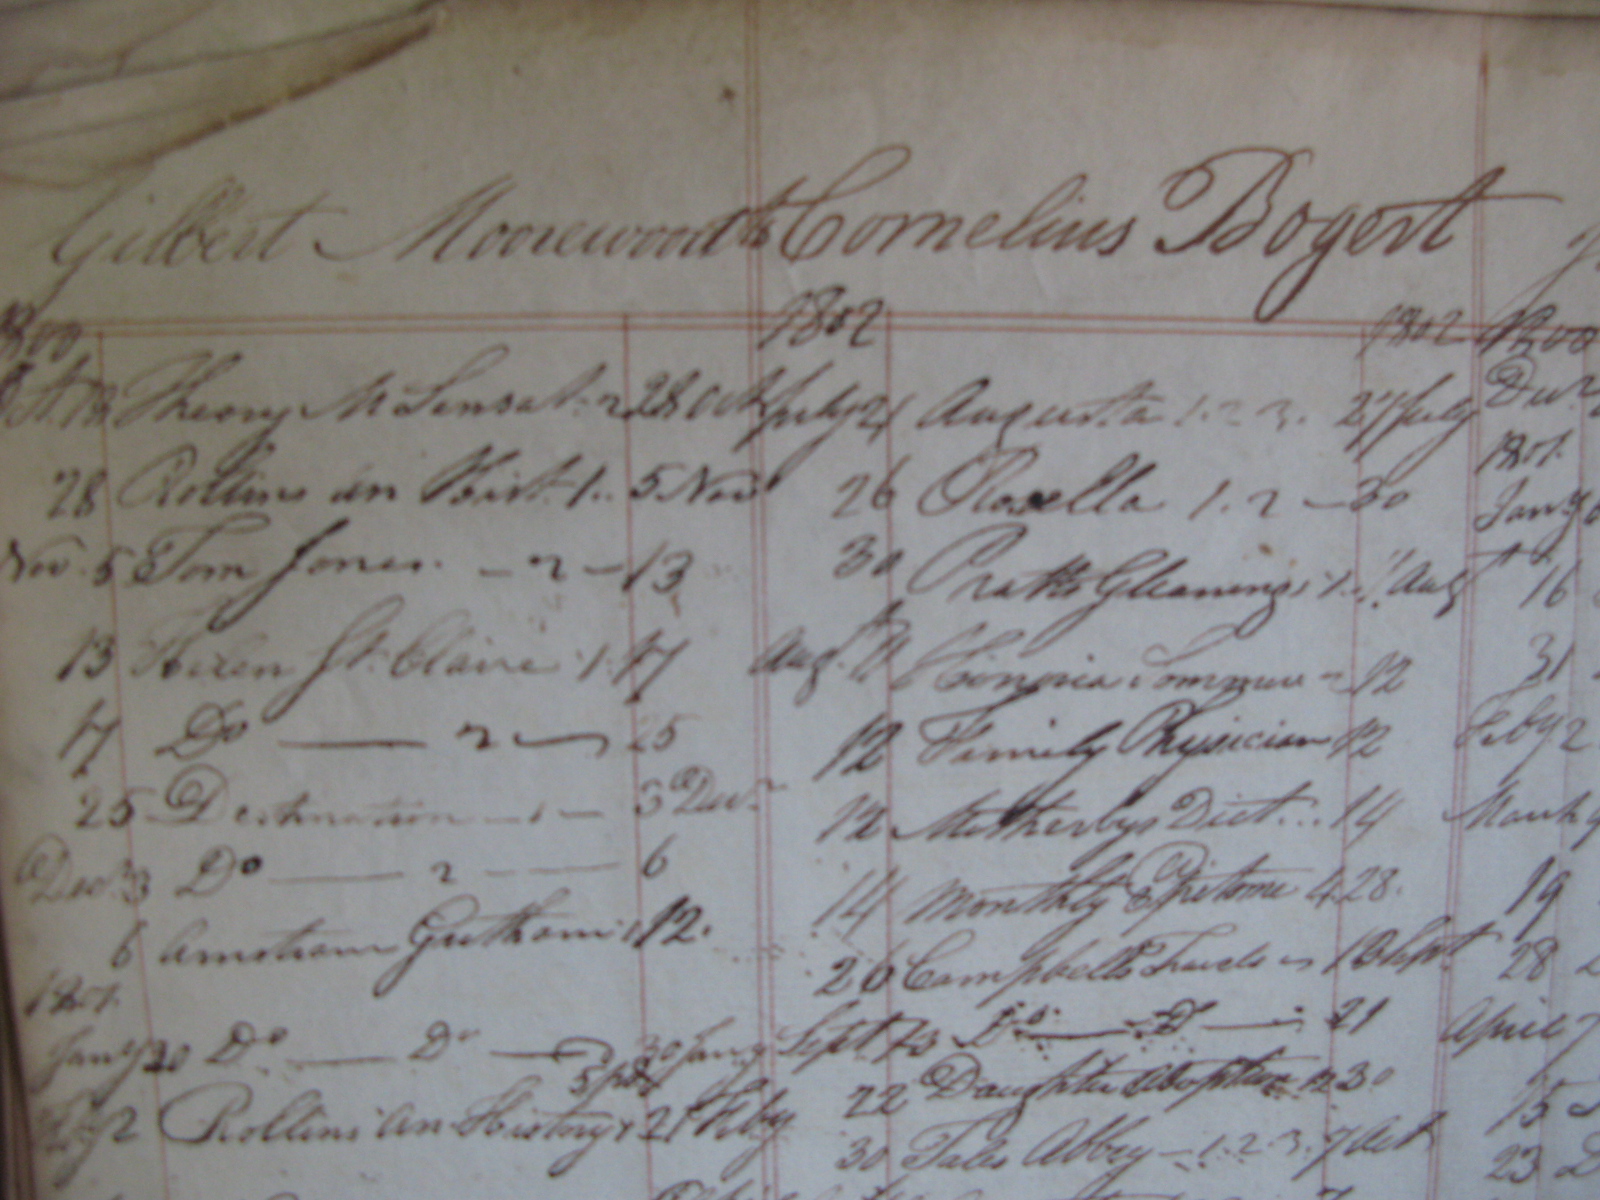 Gilbert Moorewood
Cornelius Bogert
1800
28 Oct
28 Rollins an Hist. 1. 5 Nov
Nov. 5 Tom Jones. — 2 — 13
13 Helen St. Claire 1. 17
17 Do — 2 — 25
25 Destination — 1 — 3 Decr
Decr 3 Do — 2 — 6
6 12.
1801
Jany 20 Do — Do — 30 Jany
2 Rollins an History 21 Feby
1802 1802
July 21 Augusta 1. 2. 3. 27 July
26 Rosella 1. 2 — 30
30 Pratts Gleanings 1. 11 Aug
Augt. 11 12
12 Family Physician 12
12 Motherbys Dict. 14
14 Monthly Epitome 4 28.
Campbells Travels Sept
Sept 13 Do — Do — 21
22 Daughter Adoption 30
30 Tales Abbey — 1. 2. 3. 7 Oct
1800
Decr
1801
Jany
16
31
Feby 2
March 9
19
28
April 7
15
23